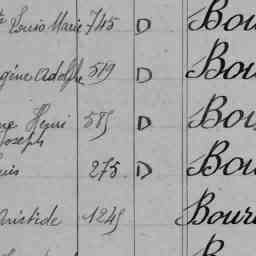 Louis Marie 745 D Bou
Adolphe 519 D Bou
Henri 585 D Bou
Joseph
275 D Bou
Aristide 1245 Bour